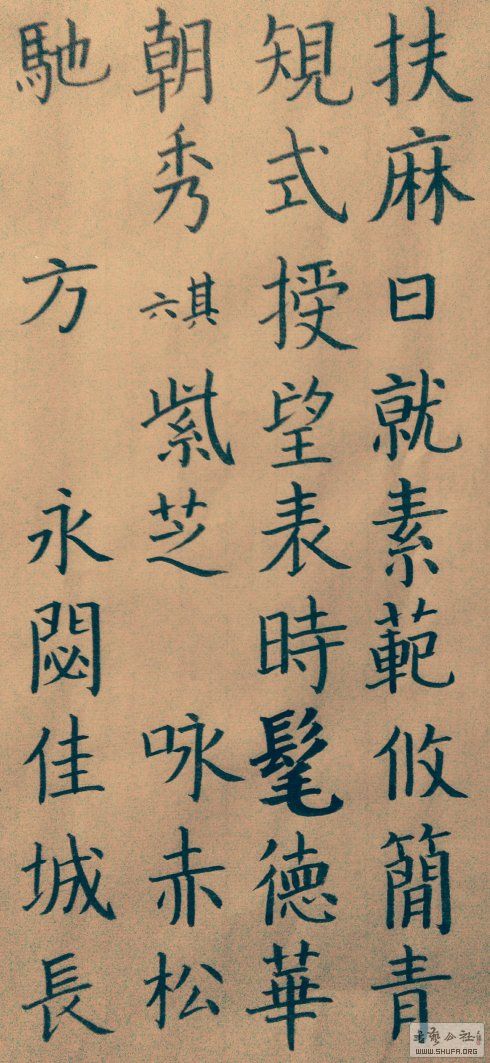 扶麻日就素範攸簡青
規式授望表時髦德華
朝秀六其紫芝咏赤松
馳方永閟佳城長
WWW.SHUFA.ORG